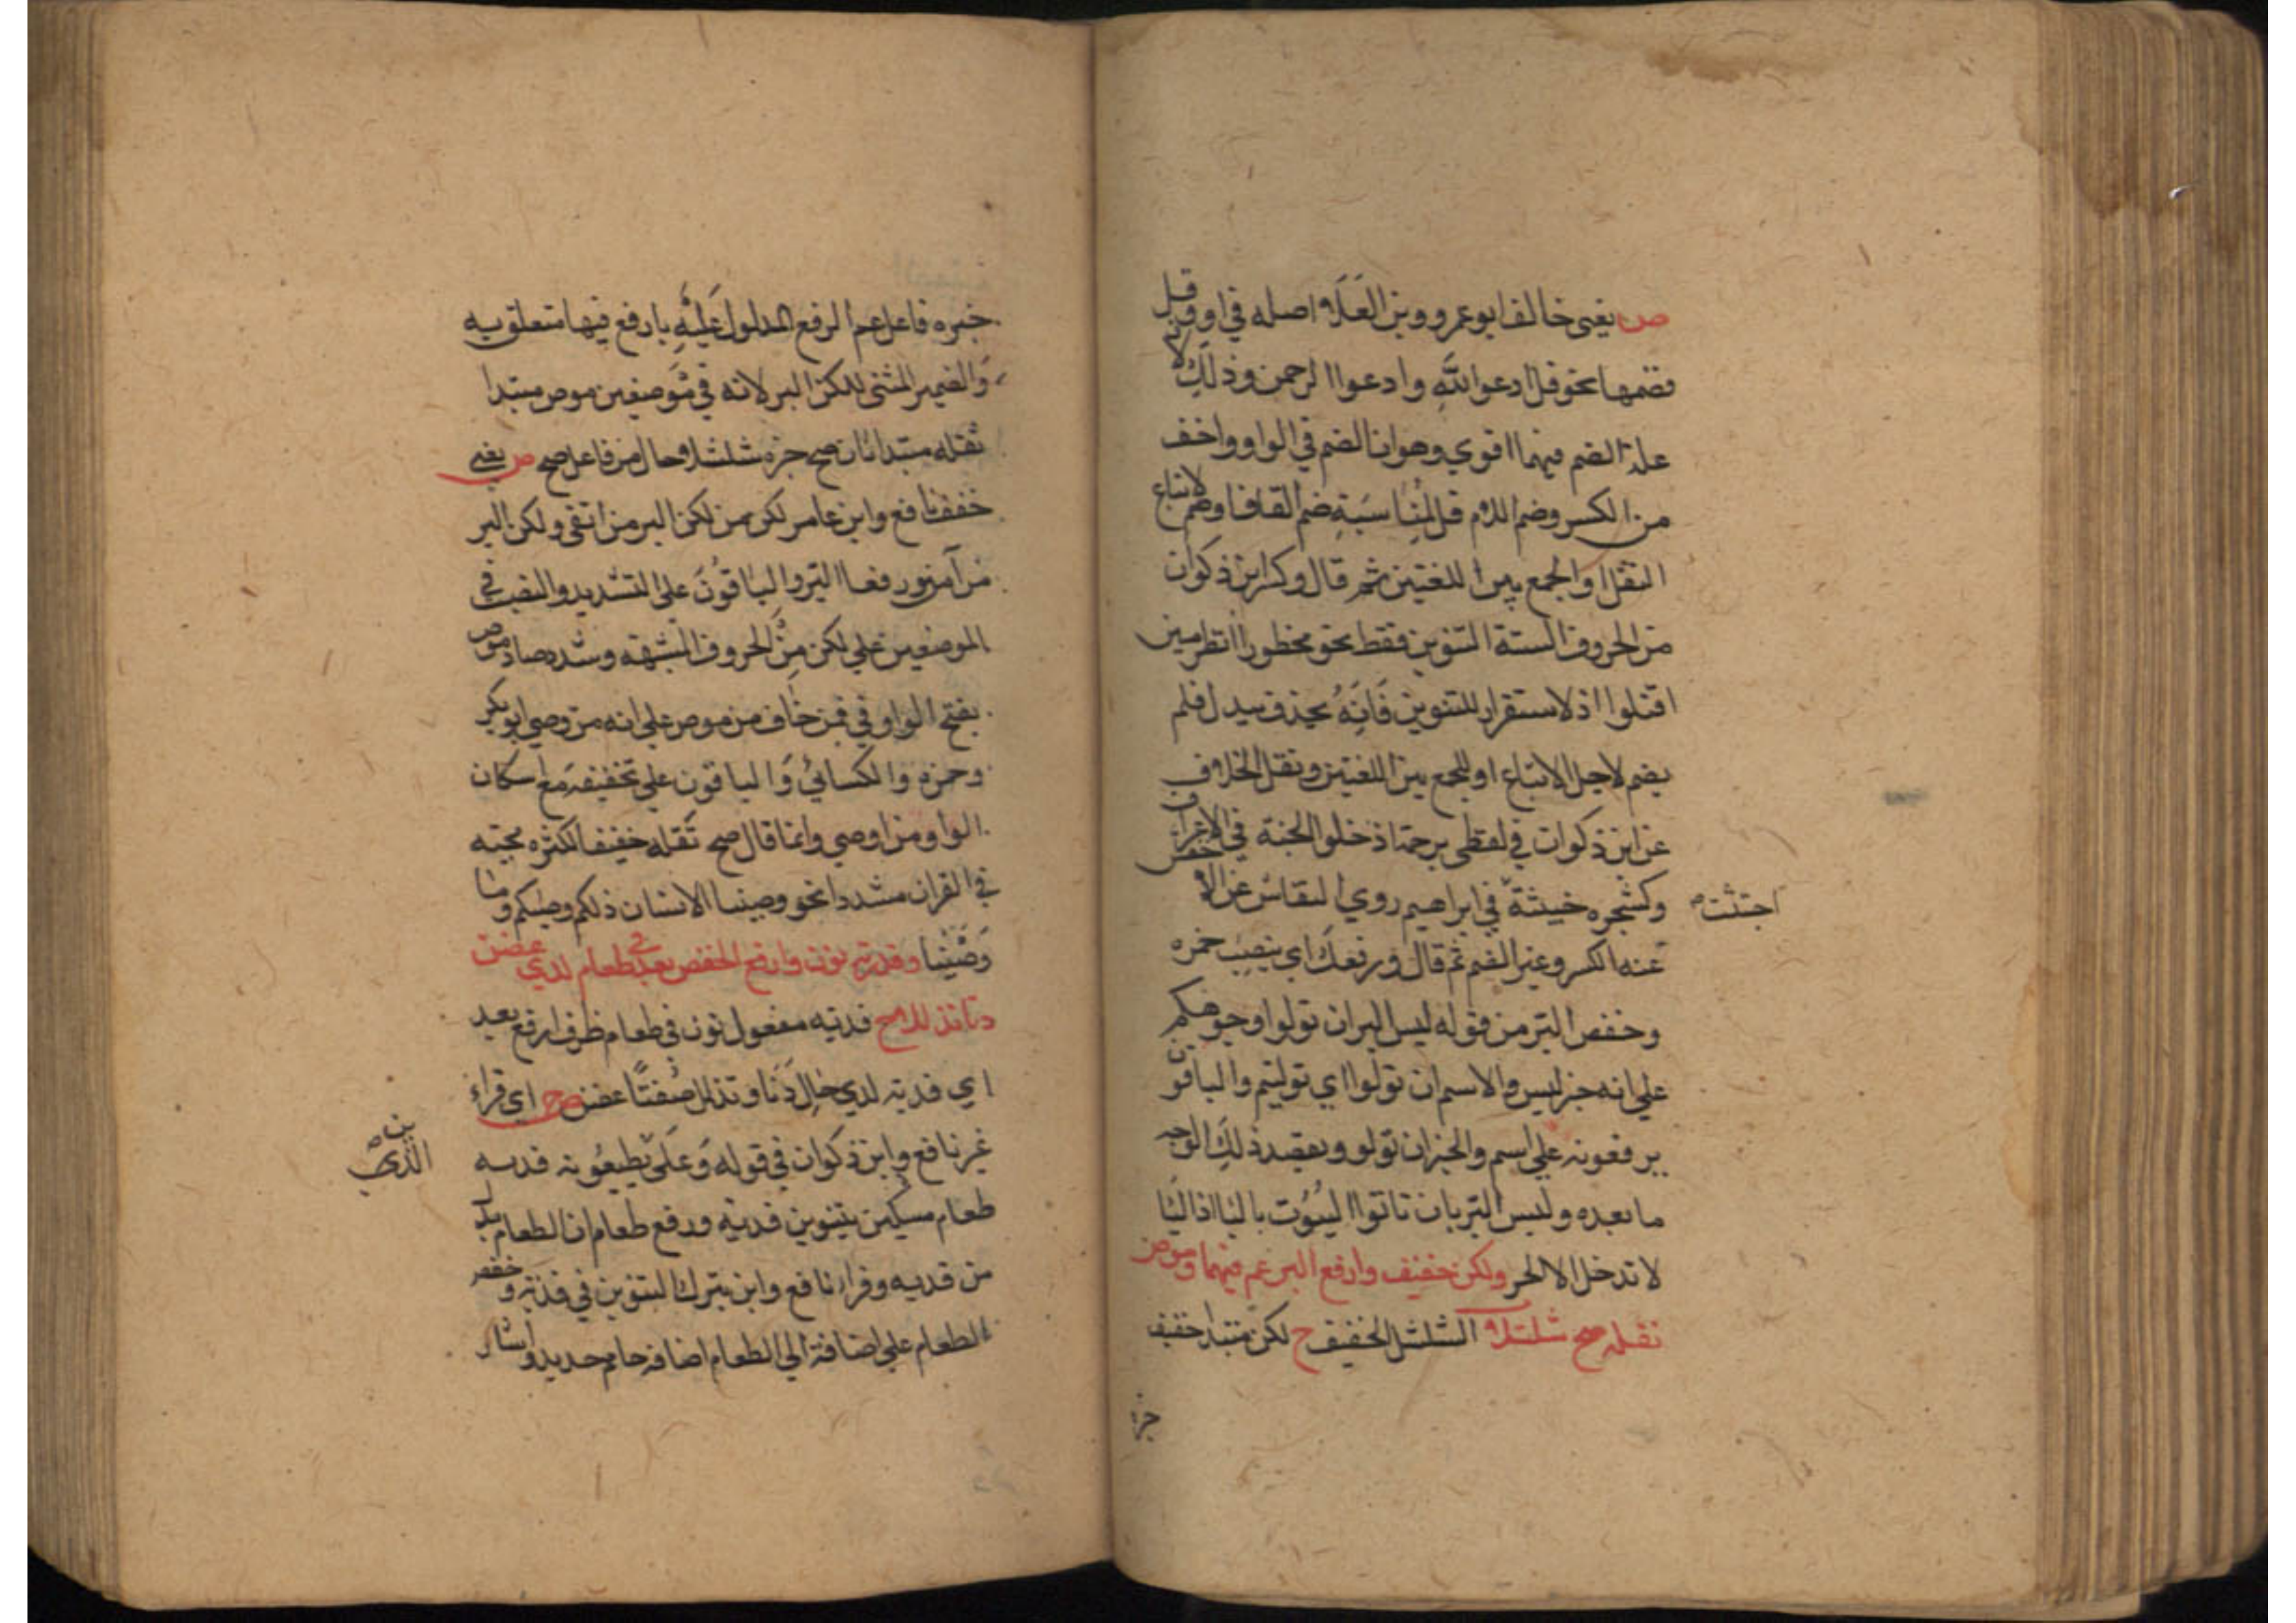 ص يعنى خالف ابو عمرو وبن العلاء اصله في او وقل
فضمها نحو قل ادعوا الله وادعوا الرحمن وذلك لان
علة الضم فيهما اقوي وهو ان الضم في الواو واخف
من الكسر وضم اللام قل لمناسبة ضم القاف اوضم لاتباع
النقل او الجمع بين اللغتين ثم قال وكسر ابن ذكوان
من الحروف الستة التنوين فقط نحو محظورا انظر مبين
اقتلوا اذ لا ستقرار للتنوين فانه يحذف يبدل فلم
يضم لاجل الاتباع او للجمع بين اللغتين ونقل الخلاف
عن ابن ذكوان في لفظى برحمة اذخلوا الجنة في الاعراف
وكشجره خبيثة في ابراهيم روي النقاش عن الاخفش
اجتثت
عنه الكسر وغير الضم ثم قال ورفعك اي ينصب حمزه
وحفص البر من قوله ليس البر ان تولوا وجوهكم
علي انه خبر ليس والاسم ان تولوا اي توليتم والباقون
يرفعونه علي اسم والخبر ان تولو ويعضد ذلك الوجه
ما بعده وليس البر بان تاتوا البيوت باليا اذ اليا
لا تدخل الا الخبر ولكن خفيف وارفع البر عم فيهما وموص
ثقله صح شلشلا الشلشل الخفيف ح لكن مبتدا خفيف
خبره
خبره فاعل عم الرفع المدلول عليه بارفع فيها متعلق به
والضمير المثنى للكن البر لانه في موضعين موص مبتدا
ثقله مبتدا ثان صح خبره شلشلا حال من فاعل صح ص يعني
خفف نافع وابن عامر لكن من لكن البر من اتقى ولكن البر
من آمن ورفعا البر والباقون على التشديد والنصب في
الموضعين علي لكن من الحروف المشبهه وشدد صاد موص
بفتح الواو في فمن خاف من موص علي انه من وصي ابو بكر
وحمزه والكسائي والباقون علي تخفيفه مع اسكان
الواو من اوصي وانما قال صح ثقله خفيفا لكثره مجيئه
في القران مشددا نحو وصينا الانسان ذلكم وصيكم وما
وصينا وفدية نون وارفع الخفض بعد في طعام لدي غصن
دنا تذللا ح فدية مفعول نون في طعام ظرف ارفع بعد
اي فدية لدي حال دنا وتذلل صفتا غصن ص اي قراء
غير نافع وابن ذكوان في قوله وعلى يطيعونه فديه
الذين
طعام مسكين بتنوين فدية ورفع طعام ان الطعام بدل
من فديه وقراء نافع وابن بترك التنوين في فدية وخفض
الطعام علي اضافة الي الطعام اضافه خاتم حديد واشار